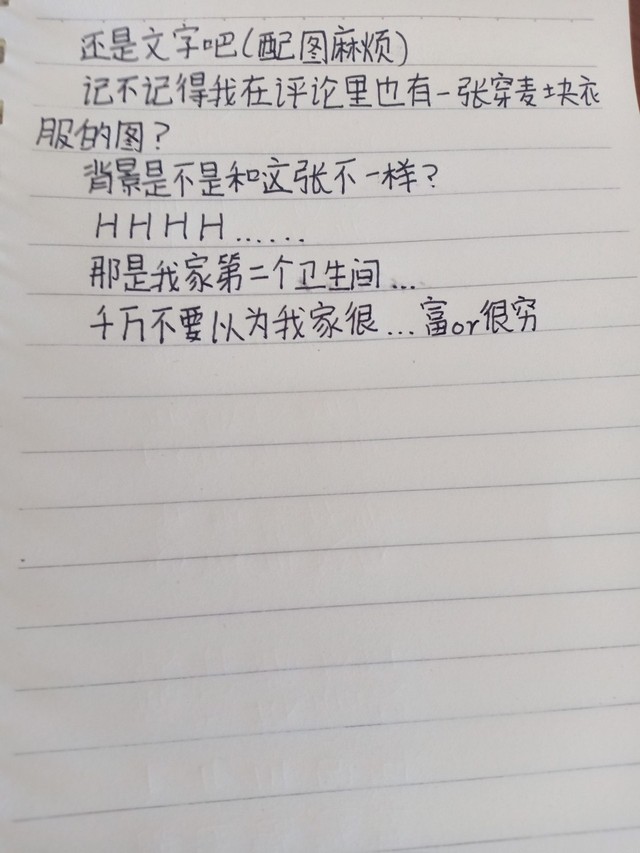 还是文字吧(配图麻烦)
记不记得我在评论里也有一张穿麦块衣
服的图?
背景是不是和这张不一样?
HHHH......
那是我家第二个卫生间...
千万不要以为我家很...富or很穷